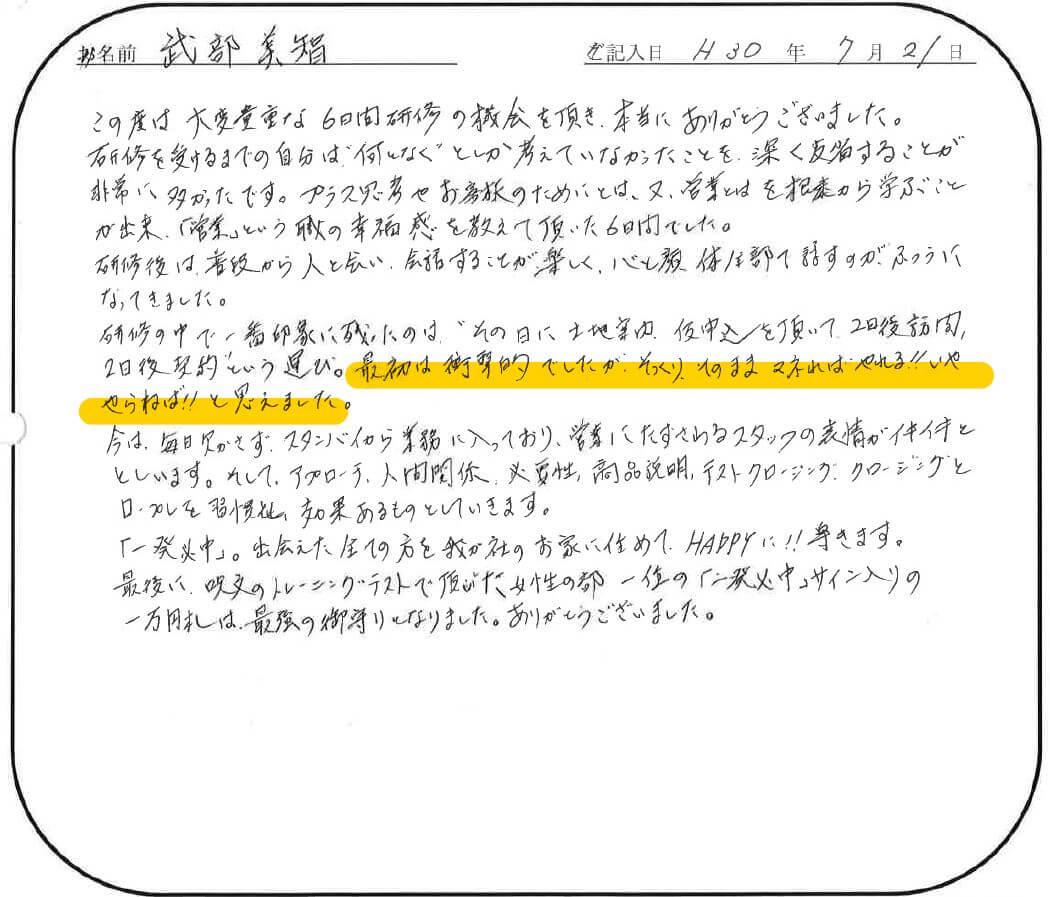 お名前 武部美智 ご記入日 H30年7月21日
この度は大変貴重な6日間研修の機会を頂き、本当にありがとうございました。
研修を受けるまでの自分は“何となく”としか考えていなかったことを、深く反省することが
非常に多かったです。プラス思考やお客様のためにとは、又、営業とはを根底から学ぶこと
が出来、「営業」という職の幸福感を教えて頂いた6日間でした。
研修後は、普段から人と会い、会話することが楽しく、心と顔、体全部で話すのがふつうに
なってきました。
研修の中で一番印象に残ったのは、“その日に土地案内、仮申込を頂いて、2日後訪問、
2日後契約”という運び。最初は衝撃的でしたが、そっくりそのままマネればやれる!!いや
やらねば!!と思えました。
今は、毎日欠かさず、スタンバイから業務に入っており、営業にたずさわるスタッフの表情がイキイキと
としいます。そして、アプローチ、人間関係、必要性、商品説明、テストクロージング、クロージングと
ロープレを習慣化、効果あるものとしていきます。
「一発必中」。出会えた全ての方を我が社のお家に住めて、HAPPYに!!導きます。
最後に、呪文のトレーニングテストで頂いた、女性の部 一位の「一発必中」サイン入りの
一万円札は、最強の御守りとなりました。ありがとうございました。